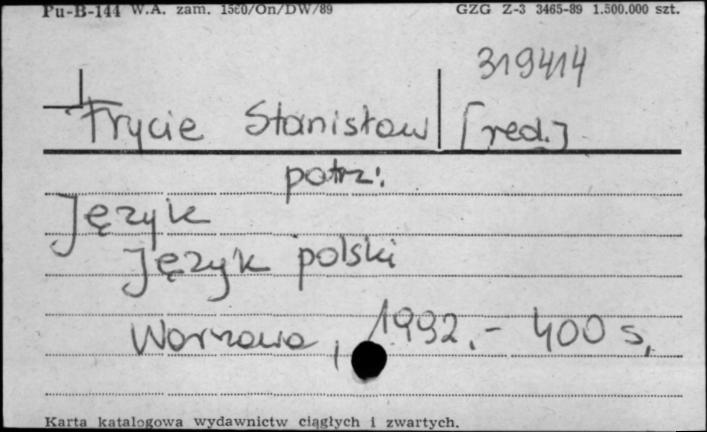 Pu-B-144 W.A. zam. 1560/On/DW/89 GZG Z-3 3465-89 1.500.000 szt.
319414
Frycie Stanisław [red.]
patrz:
Język
Język polski
Warszawa, 1992.- 400 s.
Karta katalogowa wydawnictw ciągłych i zwartych.